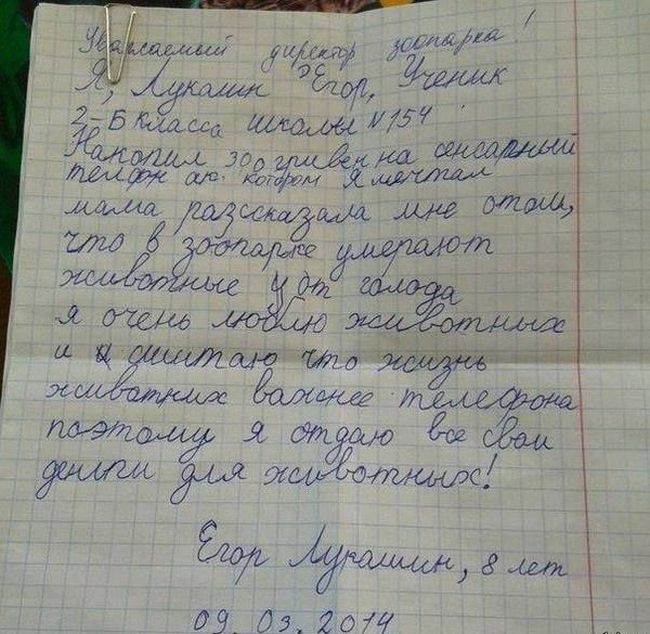 Уважаемый директор зоопарка!
Я, Лукашин Егор, Ученик
2-Б класса школы №154
Накопил 300 гривен на сенсарный
телфон о котором я мечтал
мама разсказала мне отом,
что в зоопарке умерают
животные от голода
я очень люблю животных
и считаю что жизнь
животних важнее телефона
поэтому я отдаю все свои
деньги для животных!
Егор Лукашин, 8 лет
09.03.2014